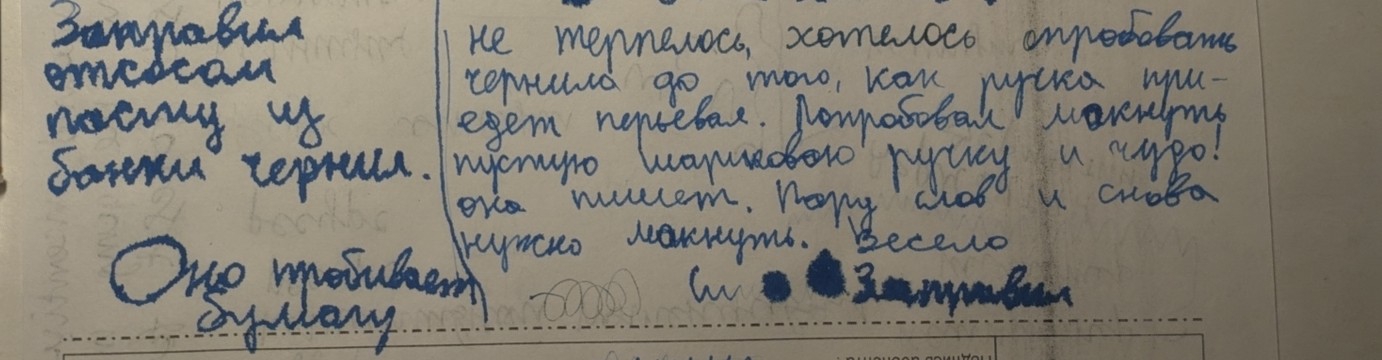 не терпелось, хотелось опробовать
чернила до того, как ручка при-
едет перьевая. Попробовал макнуть
пустую шариковою ручку и чудо!
она пишет. Пару слов и снова
нужно макнуть. Весело
Заправил
Заправил
отсосом
пасту из
банки чернил.
Оно пробивает
бумагу